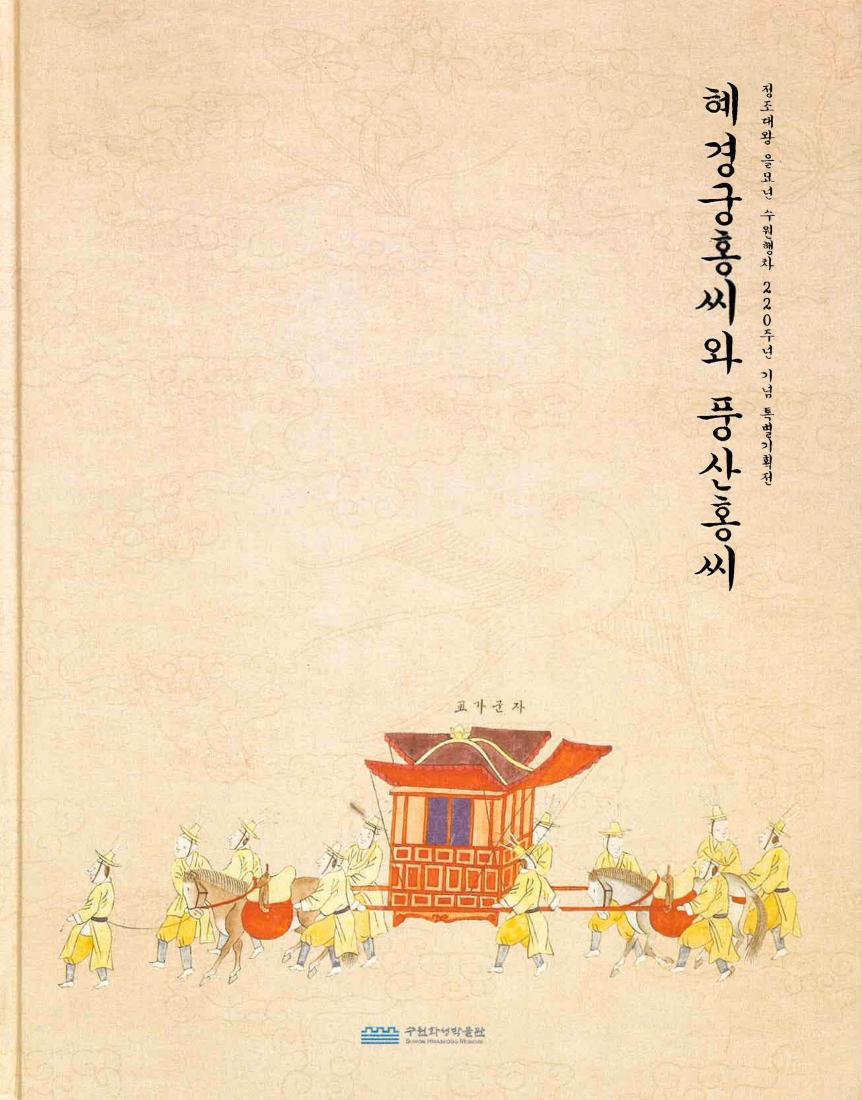 정조대왕 을묘년 수원행차 220주년 기념 특별기획전
혜경궁홍씨와 풍산홍씨
교가군자
수원화성박물관
SUWON HWASEONG MUSEUM